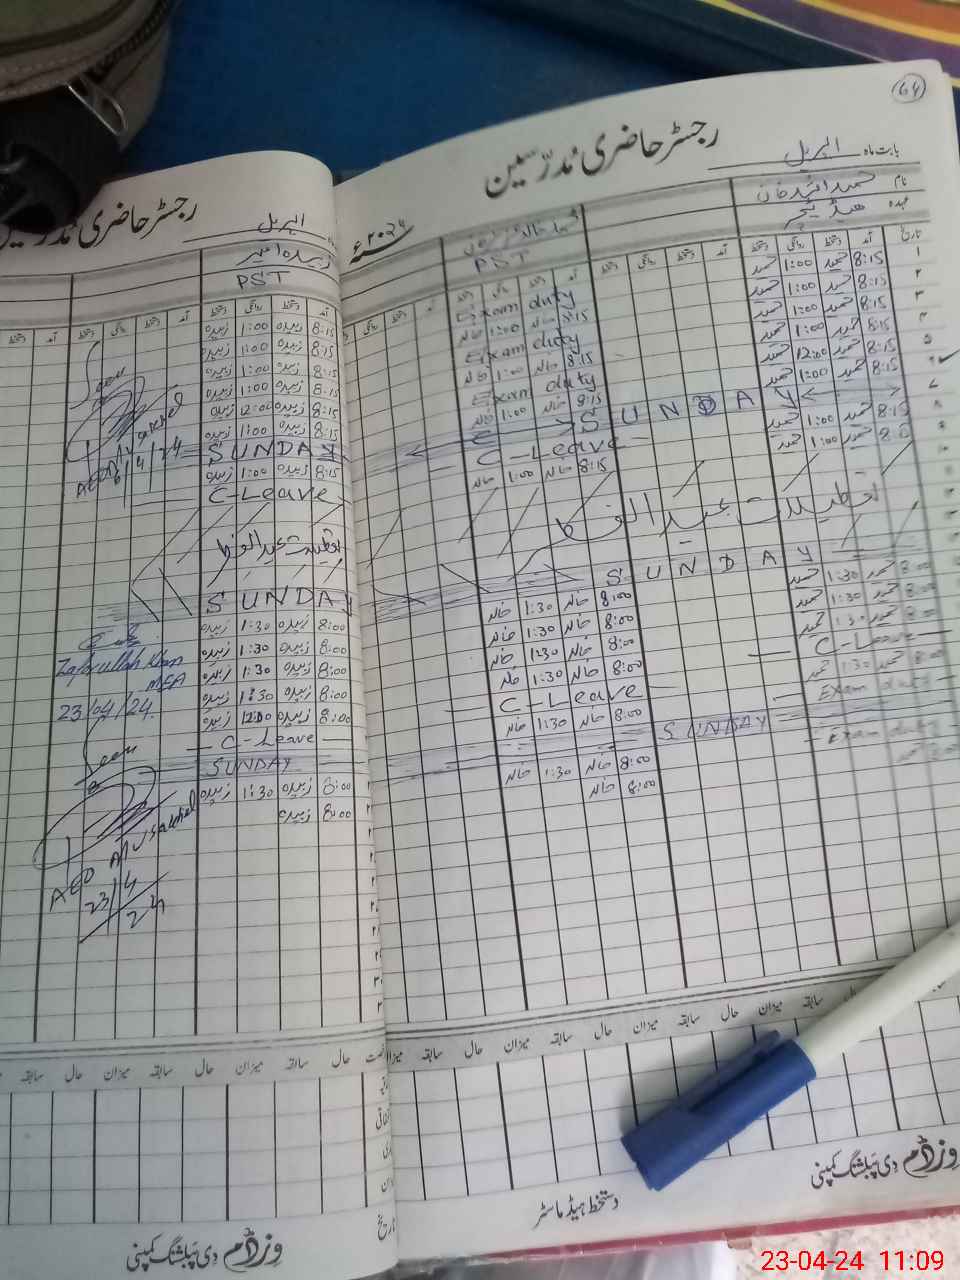 64
رجسٹر حاضری مدرّسین
بابت ماہ اپریل
۲۰۲۴ء
نام حمید اللہ خان
عہدہ ہیڈ ٹیچر
PST
تاریخ آمد دستخط روانگی دستخط
8:15 حمید 1:00 حمید
8:15 حمید 1:00 حمید
8:15 حمید 1:00 حمید
8:15 حمید 1:00 حمید
8:15 حمید 12:00 حمید
8:15 حمید 1:00 حمید
SUNDAY
8:15 حمید 1:00 حمید
8:15 حمید 1:00 حمید
تعطیلات عید الفطر
SUNDAY
8:00 حمید 1:30 حمید
8:00 حمید 1:30 حمید
8:00 حمید 1:30 حمید
C-Leave
8:00 حمید 1:30 حمید
Exam duty
SUNDAY
Exam duty
8:00
Exam duty
8:15 خالد 1:00 خالد
Exam duty
8:15 خالد 1:00 خالد
Exam duty
8:15 خالد 1:00 خالد
C-Leave
8:15 خالد 1:00 خالد
8:00 خالد 1:30 خالد
8:00 خالد 1:30 خالد
8:00 خالد 1:30 خالد
8:00 خالد 1:30 خالد
C-Leave
8:00 خالد 1:30 خالد
8:00 خالد 1:30 خالد
8:00 خالد
میزان حال سابقہ میزان حال سابقہ میزان حال سابقہ میزان
دستخط ہیڈ ماسٹر
وزڈم دی پبلشنگ کمپنی
رجسٹر حاضری
اپریل
زبیدہ امیر
PST
آمد دستخط روانگی دستخط
8:15 زبیدہ 1:00 زبیدہ
8:15 زبیدہ 1:00 زبیدہ
8:15 زبیدہ 1:00 زبیدہ
8:15 زبیدہ 1:00 زبیدہ
8:15 زبیدہ 12:00 زبیدہ
8:15 زبیدہ 1:00 زبیدہ
SUNDAY
8:15 زبیدہ 1:00 زبیدہ
C-Leave
تعطیلات عید الفطر
SUNDAY
8:00 زبیدہ 1:30 زبیدہ
8:00 زبیدہ 1:30 زبیدہ
8:00 زبیدہ 1:30 زبیدہ
8:00 زبیدہ 1:30 زبیدہ
8:00 زبیدہ 12:00 زبیدہ
C-Leave
SUNDAY
8:00 زبیدہ 1:30 زبیدہ
8:00 زبیدہ
Seen
6/4/24
Zafrullah Khan
MEA
23/04/24
Seen
AEO Musakhel
23/4/24
حال میزان سابقہ حال میزان سابقہ حال سابقہ
وزڈم دی پبلشنگ کمپنی
23-04-24 11:09